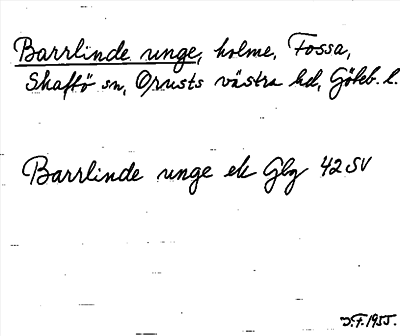 Barrlinde unge, holme, Fossa,
Skaftö sn, Orusts västra hd, Göteb. l.
Barrlinde unge ek Gbg 42 SV
J.F. 1955.